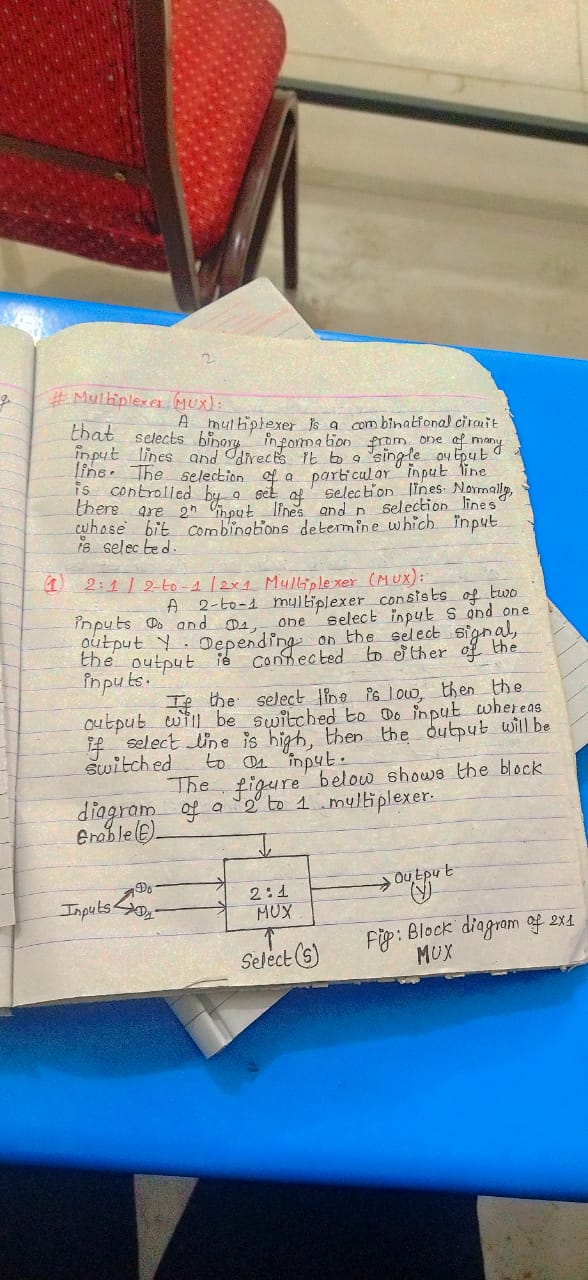 2
# Multiplexer (MUX):
A multiplexer is a combinational circuit
that selects binary information from one of many
input lines and directs it to a single output
line. The selection of a particular input line
is controlled by a set of selection lines. Normally,
there are 2ⁿ input lines and n selection lines
whose bit combinations determine which input
is selected.
① 2:1 / 2-to-1 / 2x1 Multiplexer (MUX):
A 2-to-1 multiplexer consists of two
inputs D₀ and D₁, one select input S and one
output Y. Depending on the select signal,
the output is connected to either of the
inputs.
If the select line is low, then the
output will be switched to D₀ input whereas
if select line is high, then the output will be
switched to D₁ input.
The figure below shows the block
diagram of a 2 to 1 multiplexer.
Enable (E)
Inputs D₀ D₁
2:1
MUX
Output
(Y)
Select (S)
Fig: Block diagram of 2x1
MUX